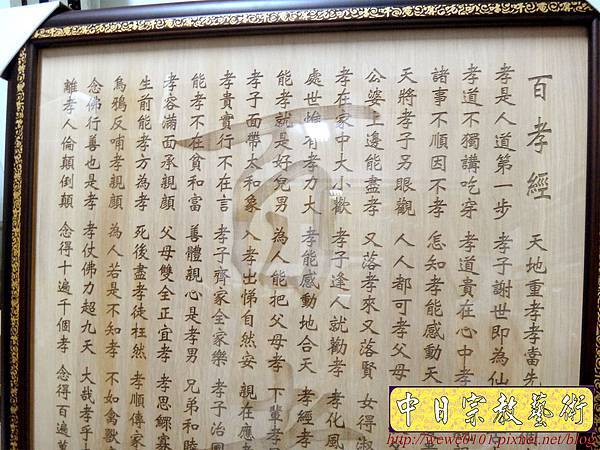 百孝經 天地重孝孝當先
孝是人道第一步 孝子謝世即為仙
孝道不獨講吃穿 孝道貴在心中孝
諸事不順因不孝 怎知孝能感動天
天將孝子另眼觀 人人都可孝父母
公婆上邊能盡孝 又落孝來又落賢 女得淑
孝在家中大小歡 孝子逢人就勸孝 孝化風
處世惟有孝力大 孝能感動地合天 孝經孝
能孝就是好兒男 為人能把父母孝 下輩孝
孝子面帶太和象 入孝出悌自然安 親在應
孝貴實行不在言 孝子齊家全家樂 孝子治國
能孝不在貧和富 善體親心是孝男 兄弟和睦
孝容滿面承親顏 父母雙全正宜孝 孝思鰥寡
生前能孝方為孝 死後盡孝徒枉然 孝順傳家
烏鴉反哺孝親顏 為人若是不知孝 不如禽獸
念佛行善也是孝 孝仗佛力超九天 大哉孝乎大
離孝人倫顛倒顛 念得十遍千個孝 念得百遍萬
中日宗教藝術
http://wewe0101.pixnet.net/blog